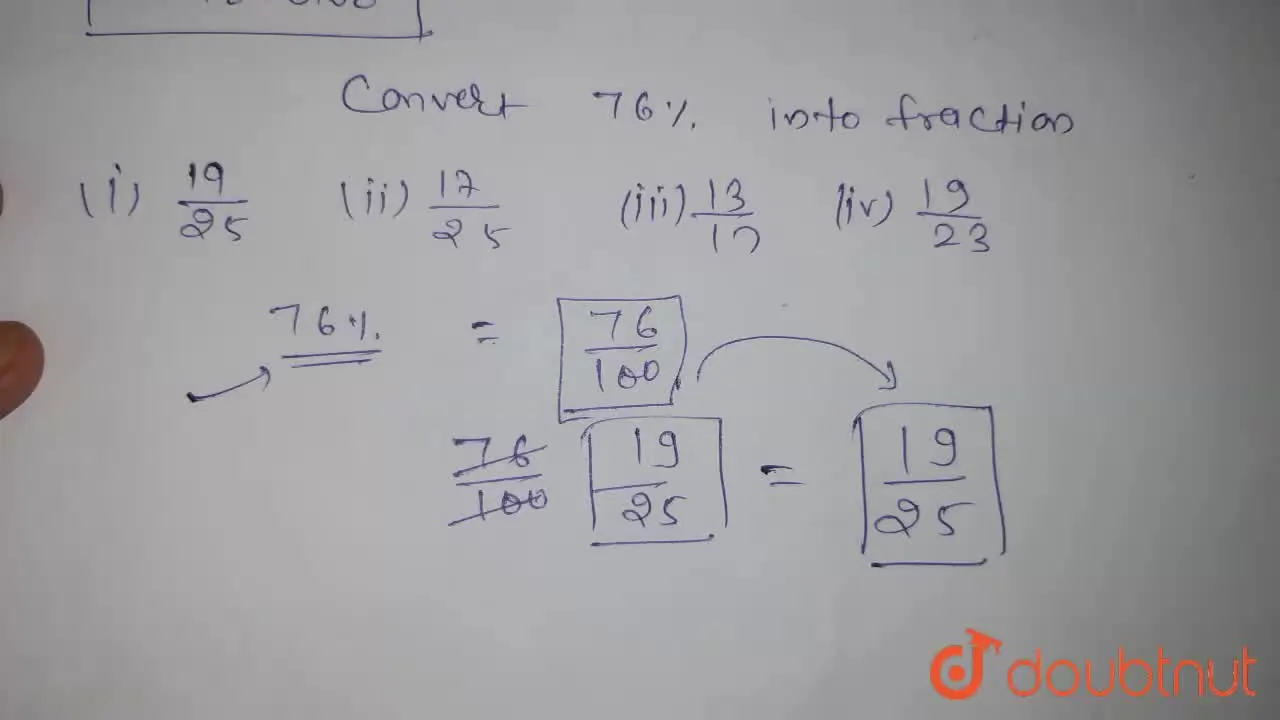 Convert 76% into fraction
(i) 19/25 (ii) 17/25 (iii) 13/17 (iv) 19/23
76% = 76/100
76/100 19/25 = 19/25
doubtnut